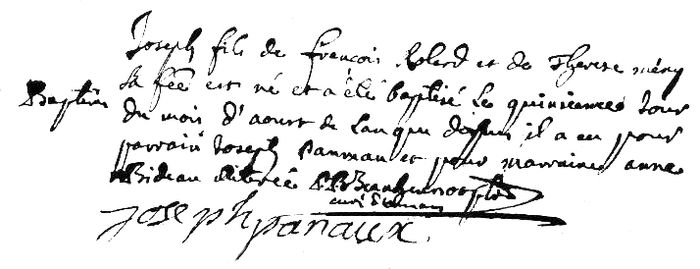 Joseph fils de françois Relerd et de Therese mény
Baptême
sa féé est né et a été baptisé le quinieme Jour
du mois d'aoust de lan que dessus il a eu pour
parrain Joseph Pannau et pour marraine anne
Bideau
curé
Joseph panaux.